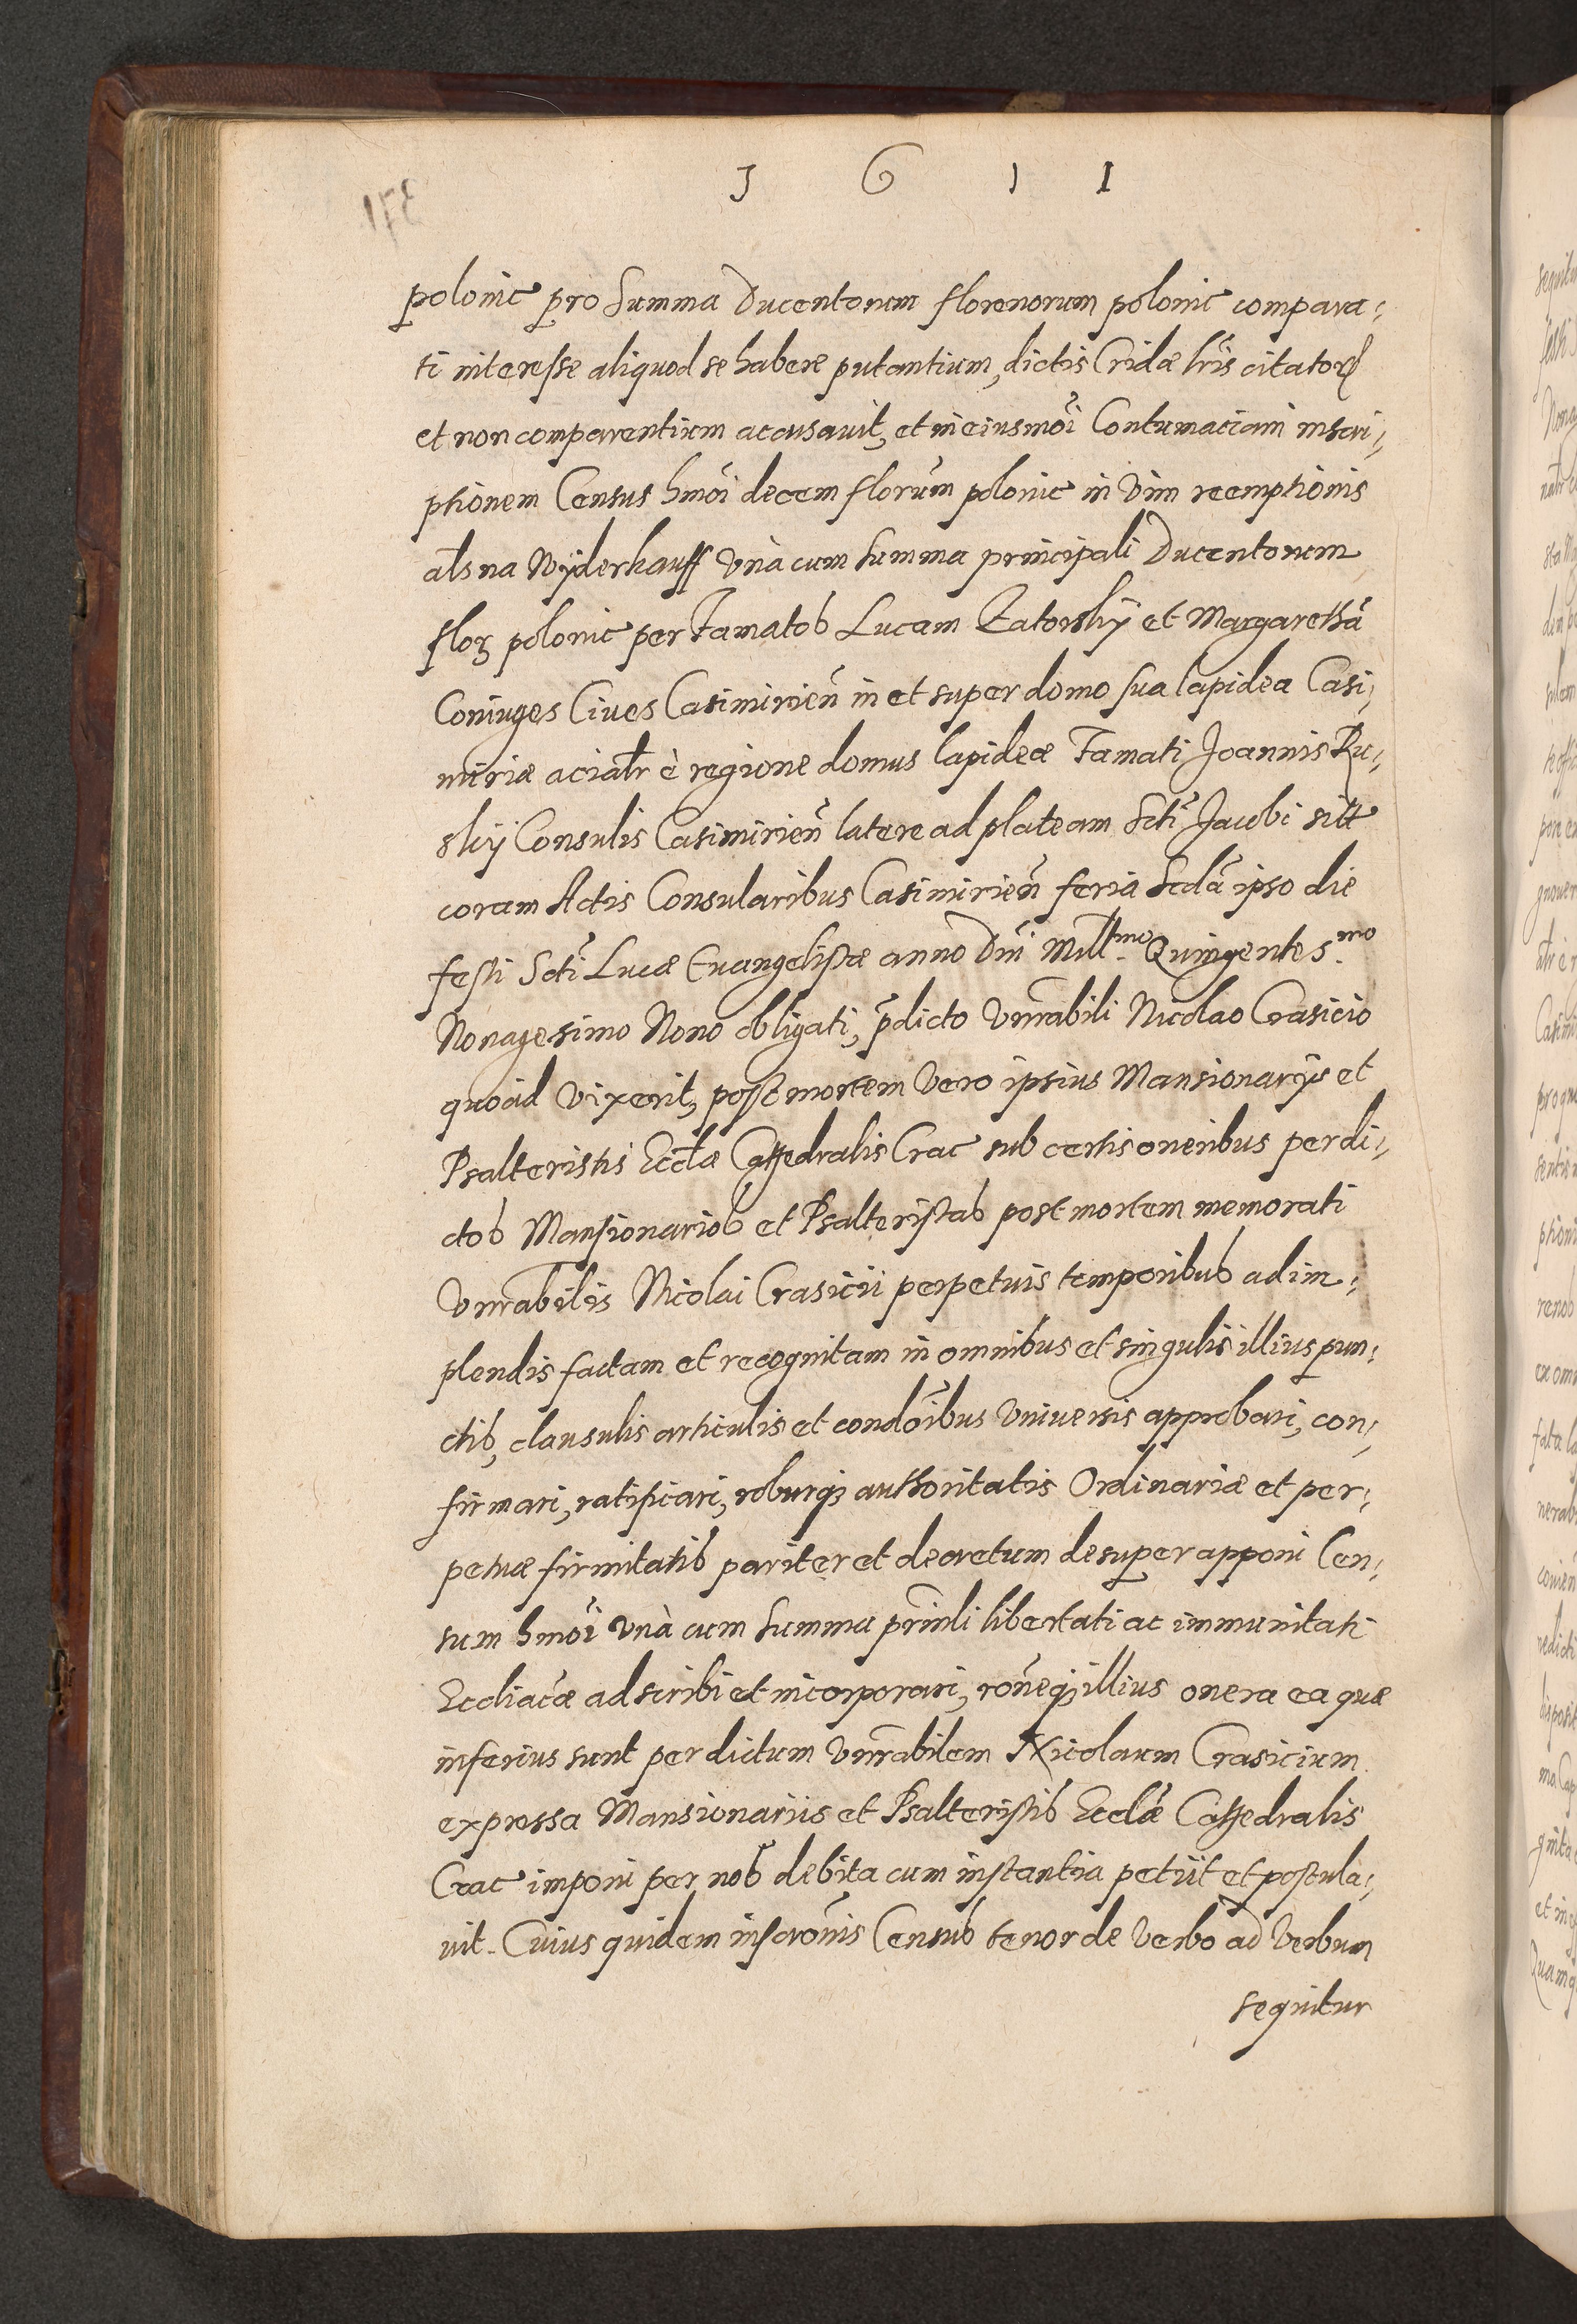 1 6 1 1
polonic pro Summa Ducentorum florenorum polonic compara,
ti interesse aliquod se habere putantium, dictis Cridæ lris citatorꝝ
et non comparentium accusauit, et in eiusmoi Contumaciam inscri,
ptionem Census hmoi decem florum polonic in Vim reemptionis
als na Wyderkauff Vna cum Summa principali Ducentorum
floꝝ polonic per Famatos Lucam Zatorskÿ et Margarethã
Coniuges Ciues Casimirien̄ in et super domo sua lapidea Casi,
miriæ aciatr è regione domus lapideæ Famati Joannis Ru,
skÿ Consulis Casimirien̄ latere ad plateam Scti Jacobi sitt
coram Actis Consularibus Casimirien̄ feria Scdã ipso die
festi Scti Lucæ Euangelistæ anno Dni Mill.mo Quingentes.mo
Nonagesimo Nono obligati, p̄dicto Vnrabili Nicolao Crasicio
quoad Vixerit, post mortem Vero ipsius Mansionarijs et
Psalteristis Eccl̃æ Cathedralis Crac sub certis oneribus per di,
ctos Mansionarios et Psalteristas post mortem memorati
Vnrabilis Nicolai Crasicii perpetuis temporibus adim,
plendis factam et recognitam in omnibus et singulis illius pun,
ctis, clausulis articulis et condoibus Vniuersis approbari, con,
firmari, ratificari, roburq̃ authoritatis Ordinariæ et per,
petuæ firmitatis pariter et decretum desuper apponi Cen,
sum hmoi Vnà cum Summa prinli libertati ac immunitati
Eccliacæ adscribi et incorporari, roneq̃ illius onera ea quæ
inferius sunt per dictum Vnrabilem Nicolaum Crasicium
expressa Mansionariis et Psalteristis Ecclæ Cathedralis
Crac imponi per nos debita cum instantia petiit et postula,
uit. Cuius quidem inscronis Census tenor de Verbo ad Verbum
sequitur